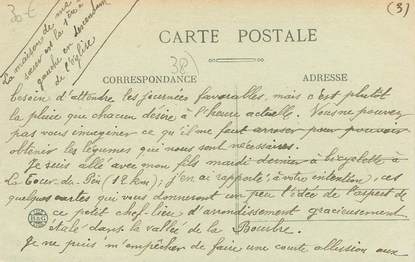 30€
(3)
La maison de ma
sœur est la 1ère à
gauche en descendant
de l'église
CARTE POSTALE
38)
CORRESPONDANCE
ADRESSE
besoin d'attendre les journées favorables, mais c'est plutôt
la pluie que chacun désire à l'heure actuelle. Vous ne pouvez
pas vous imaginer ce qu'il me faut arroser pour pouvoir
obtenir les légumes qui nous sont nécessaires.
Je suis allé avec mon fils mardi dernier à bicyclette à
La Tour-du-Pin (12 km); j'en ai rapporté, à votre intention, ces
quelques cartes qui vous donneront un peu l'idée de l'aspect de
ce petit chef-lieu d'arrondissement gracieusement
étalé dans la vallée de la Bourbre.
Je ne puis m'empêcher de faire une courte allusion aux